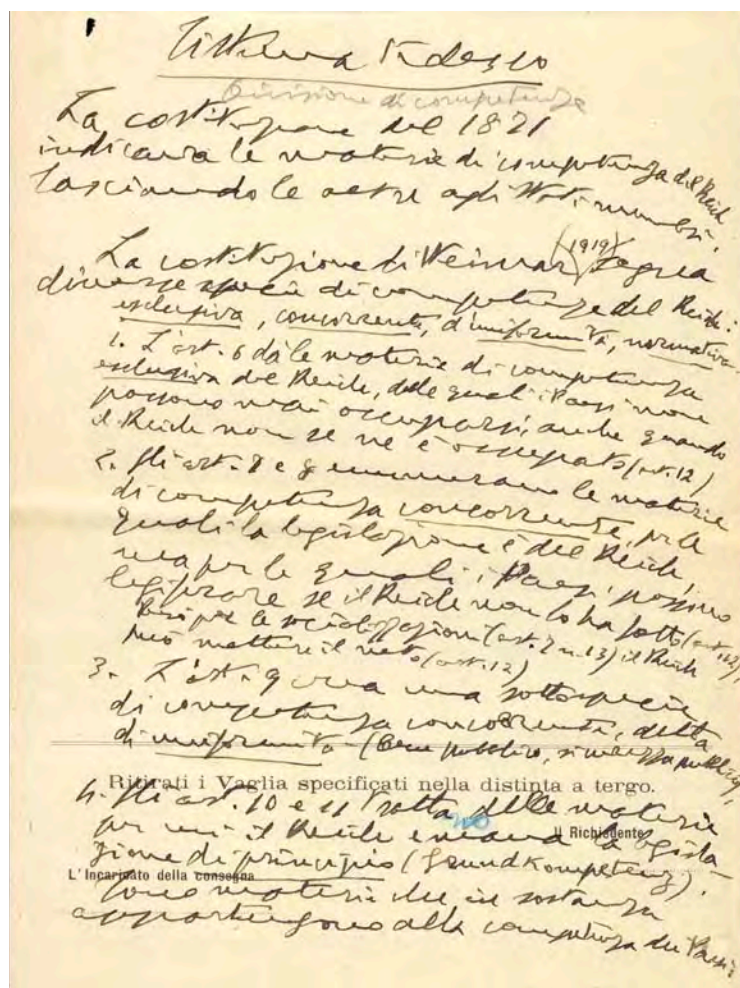 Sistema tedesco
Divisione di competenza
La costituzione del 1871
indicava le materie di competenza del Reich
lasciando le altre agli Stati membri.
La costituzione di Weimar (1919) segna
diverse specie di competenze del Reich:
esclusiva, concorrente, d'uniformità, normativa.
1. L'art. 6 dà le materie di competenza
esclusiva del Reich, delle quali i Paesi non
possono mai occuparsi, anche quando
il Reich non se ne è occupato (art. 12)
2. Gli art. 7 e 8 enumerano le materie
di competenza concorrente, per le
quali la legislazione è del Reich,
ma per le quali i Paesi possono
legiferare se il Reich non lo ha fatto (art. 12),
per le socializzazioni (art. 7 n. 13) il Reich
può mettere il veto (art. 12)
3. L'art. 9 crea una sottospecie
di competenza concorrente, detta
di uniformità (bene pubblico, sicurezza pubblica)
Ritirati i Vaglia specificati nella distinta a tergo.
4. Gli art. 10 e 11 trattano delle materie
per cui il Reich emana la legisla-
Il Richiedente
zione di principio (Grundkompetenz).
L'Incaricato della consegna
Sono materie che in sostanza
appartengono alla competenza dei Paesi